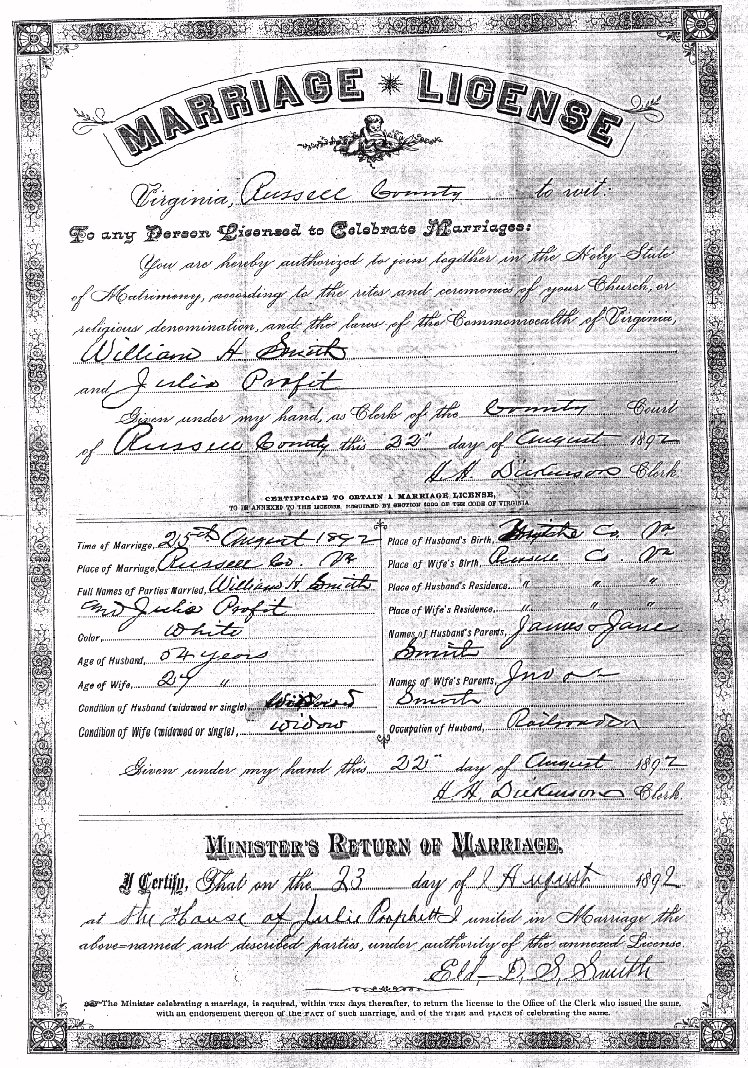 MARRIAGE * LICENSE
Virginia, Russell County to wit:
To any Person Licensed to Celebrate Marriages:
You are hereby authorized to join together in the Holy State
of Matrimony, according to the rites and ceremonies of your Church, or
religious denomination, and the laws of the Commonwealth of Virginia,
William H Smith
and Julia Profit
Given under my hand, as Clerk of the County Court
of Russell County this 22" day of August 1892
H. H. Dickenson Clerk.
CERTIFICATE TO OBTAIN A MARRIAGE LICENSE,
TO BE ANNEXED TO THE LICENSE, REQUIRED BY SECTION OF THE CODE OF VIRGINIA.
Time of Marriage, 25th August 1892
Place of Marriage, Russell Co. Va
Full Names of Parties Married, William H. Smith
and Julia Profit
Color, White
Age of Husband, 54 years
Age of Wife, 29 "
Condition of Husband (widowed or single),
Condition of Wife (widowed or single), widow
Place of Husband's Birth, Co. Va
Place of Wife's Birth, Russell Co. Va
Place of Husband's Residence, " " "
Place of Wife's Residence, " " "
Names of Husband's Parents, James & Jane
Smith
Names of Wife's Parents, Jno
Smith
Occupation of Husband, Railroader
Given under my hand this 22" day of August 1892
H. H. Dickenson Clerk.
MINISTER'S RETURN OF MARRIAGE.
I Certify, That on the 23 day of August 1892
at the House of Julie Prophett I united in Marriage the
above-named and described parties, under authority of the annexed License.
Eld- D. S. Smith
The Minister celebrating a marriage, is required, within TEN days thereafter, to return the license to the Office of the Clerk who issued the same,
with an endorsement thereon of the FACT of such marriage, and of the TIME and PLACE of celebrating the same.